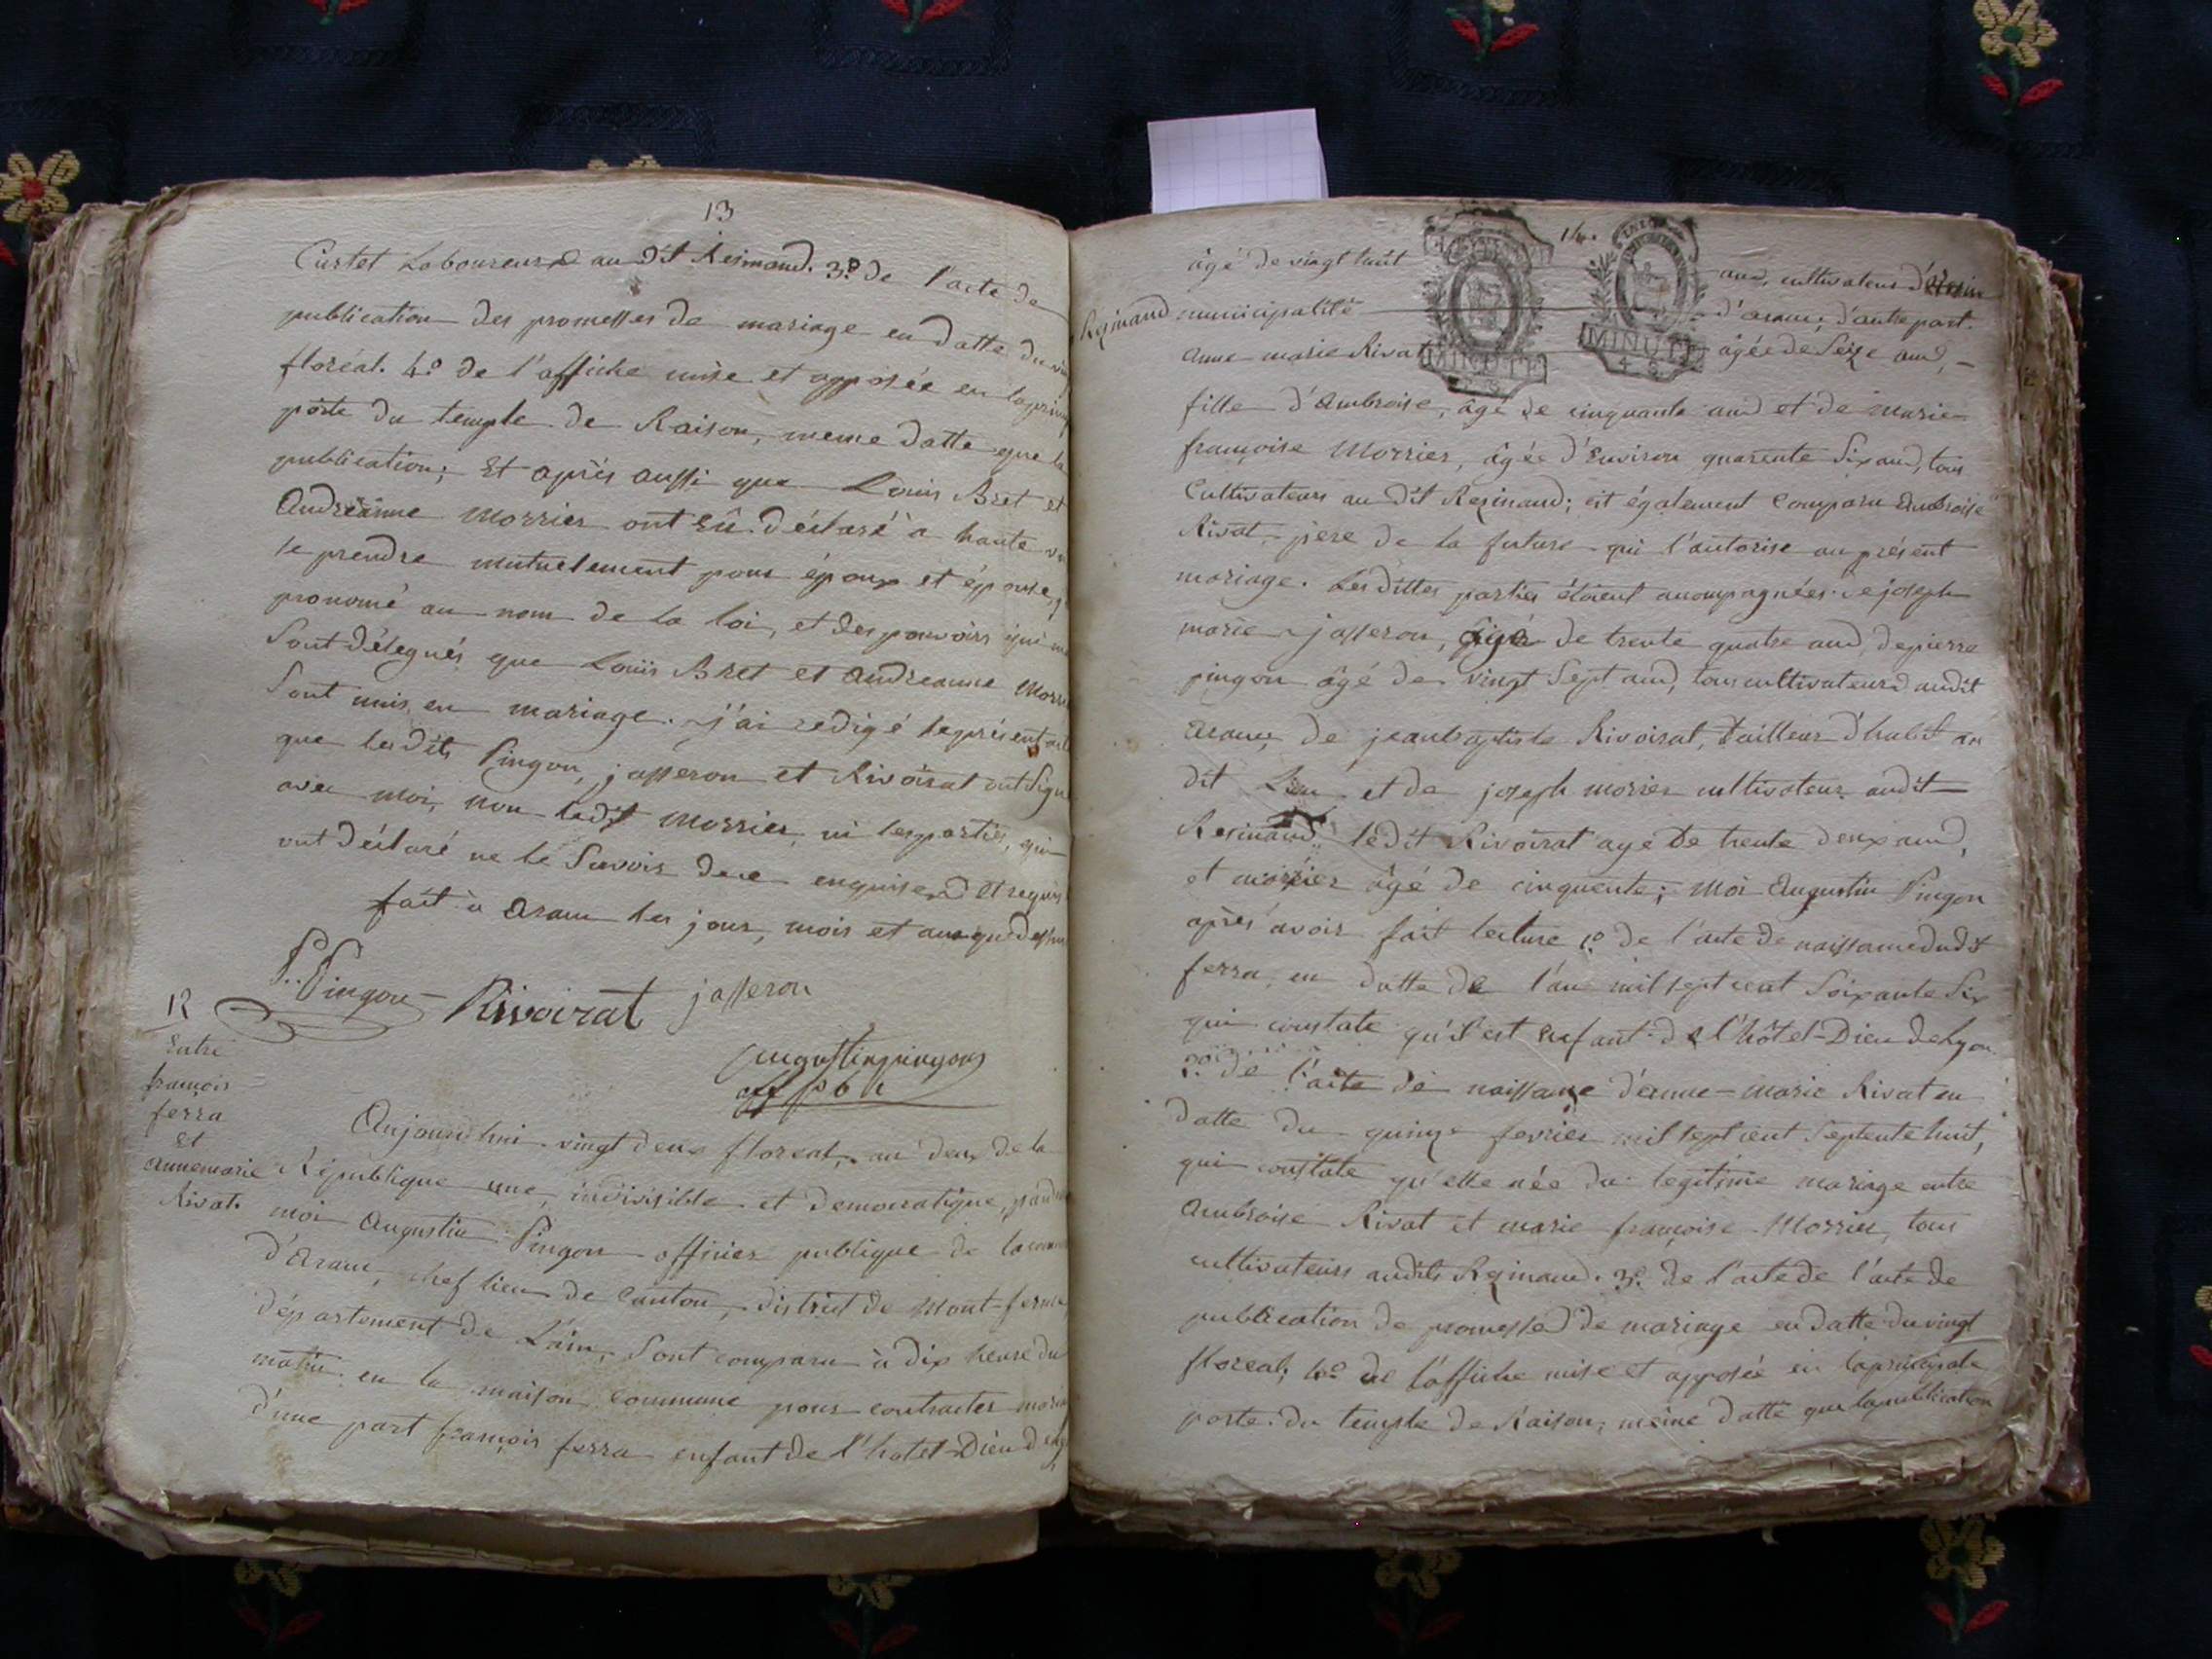 13
Curtet Laboureurs au dit Resinand. 3.º de l'acte de
publication des promesses de mariage en datte du
floréal. 4.º de l'affiche mise et apposée en la
porte du temple de Raison, meme datte que la
publication; Et après aussi que Louis Bret et
Andréanne Morrier ont eû déclaré à haute
se prendre mutuelement pour époux et épouse,
prononcé au nom de la loi, et des pouvoirs qui me
sont délegués que Louis Bret et Andréanne
sont unis en mariage. j'ai redigé le présent
que lesdits Pingon, jasseron et Rivoirat ont signé
avec moi, non ledit Morrier, ni les parties, qui
ont déclaré ne le savoir de ce enquises et requis
fait à Aranc les jour, mois et an que dessus
P. Pingon Rivoirat jasseron
augustin pingon
off pb l
12
Entre
françois
ferra
et
annemarie
Rivat.
Aujourdhui vingt deux floreal, an deux de la
République une, indivisible et democratique, pardevant
moi Augustin Pingon officier publique de la
d'Aranc, chef lieu de Canton, district de Mont-ferme
département de L'ain, sont comparu à dix heure du
matin en la maison commune pour contracter
d'une part françois ferra enfant de l'hotel-Dieu de
14.
âgé de vingt huit ans, cultivateur
Resinand municipalité d'aranc; d'autre part.
MINUTE
MINUTE
anne marie Rivat âgée de seize ans,
fille d'ambroise, âgé de cinquante ans et de marie
françoise Morrier, âgée d'environ quarente six ans, tous
Cultivateurs au dit Resinand; est également Comparu Ambroise
Rivat, pere de la future qui l'autorise au présent
mariage. Lesdittes parties étoient accompagnées de joseph
marie jasseron, âgé de trente quatre ans, de pierre
pingon âgé de vingt sept ans, tous cultivateurs audit
aranc, de jeanbaptiste Rivoirat, tailleur d'habit au
dit Lieu et de joseph morrier cultivateur audit
Resinand, ledit Rivoirat agé de trente deux ans,
et morrier âgé de cinquente; moi Augustin Pingon
après avoir fait lecture 1.º de l'acte de naissance dudit
ferra, en datte de l'an mil sept cent soixante six
qui constate qu'il est enfant de l'hôtel-Dieu de Lyon.
2.º de l'acte de naissance d'anne-marie Rivat en
datte du quinze fevrier mil sept cent septente huit,
qui constate qu'elle née du legitime mariage entre
Ambroise Rivat et marie françoise Morrier, tous
cultivateurs audits Resinand. 3.º de l'acte de l'acte de
publication de promesses de mariage en datte du vingt
floreal; 4.º de l'affiche mise et apposée en la principale
porte du temple de Raison, même datte que la publication